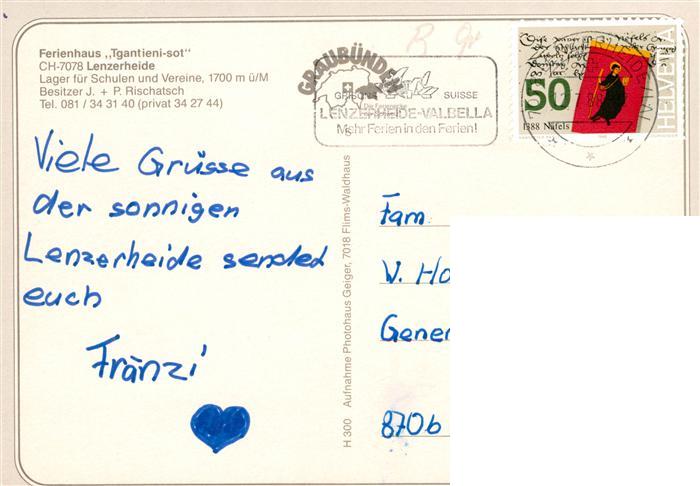 Ferienhaus „Tgantieni-sot"
CH-7078 Lenzerheide
Lager für Schulen und Vereine, 1700 m ü/M
Besitzer J. + P. Rischatsch
Tel. 081 / 34 31 40 (privat 34 27 44)
GRAUBÜNDEN
SUISSE
Die Ferienecke
LENZERHEIDE-VALBELLA
Mehr Ferien in den Ferien!
HELVETIA
50
1388 Näfels
Viele Grüsse aus
der sonnigen
Lenzerheide sended
euch
Fränzi
H 300 Aufnahme Photohaus Geiger, 7018 Flims-Waldhaus
Fam.
W. Ho
Gener
8706